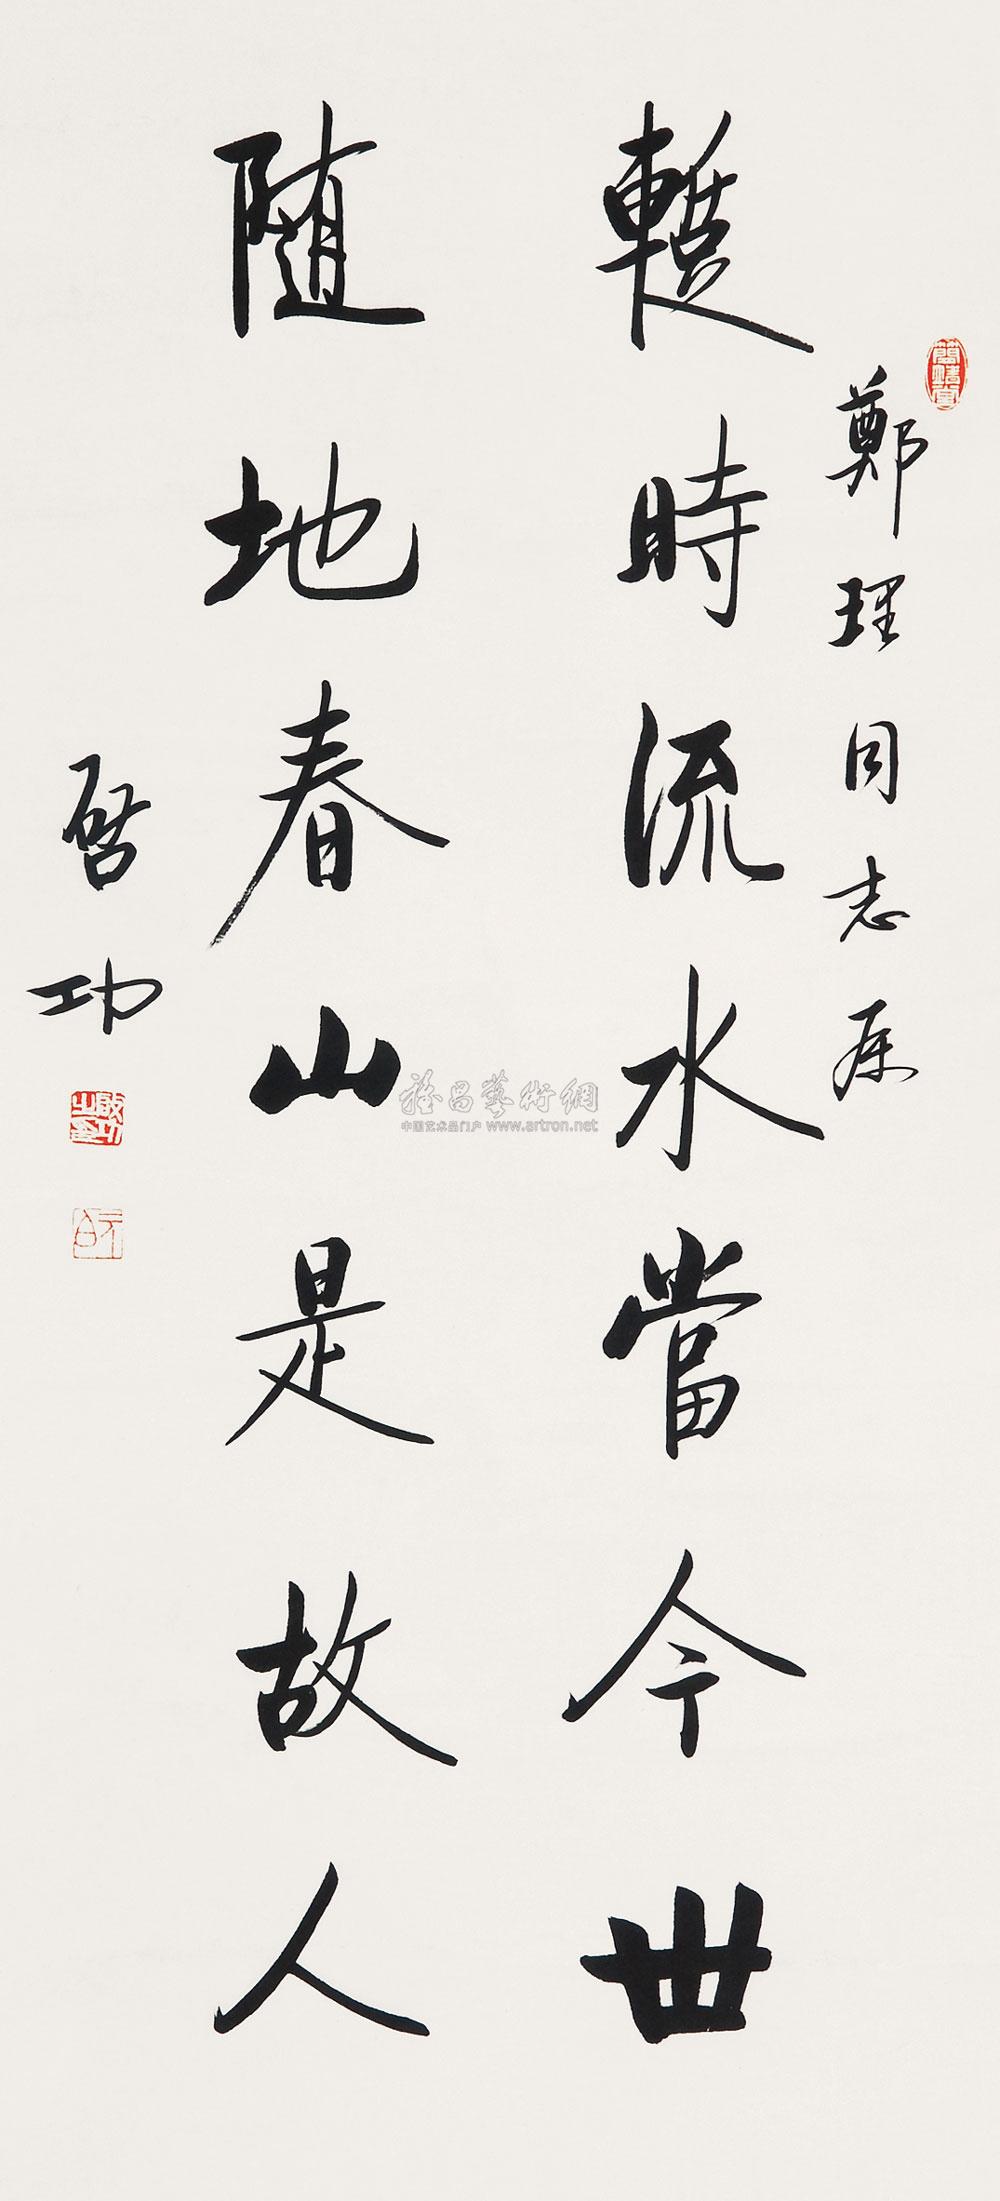 鄭理同志屬
暫時流水當今世
隨地春山是故人
啓功
啟功之印
元白
雅昌藝術網
中国艺术品门户 www.artron.net